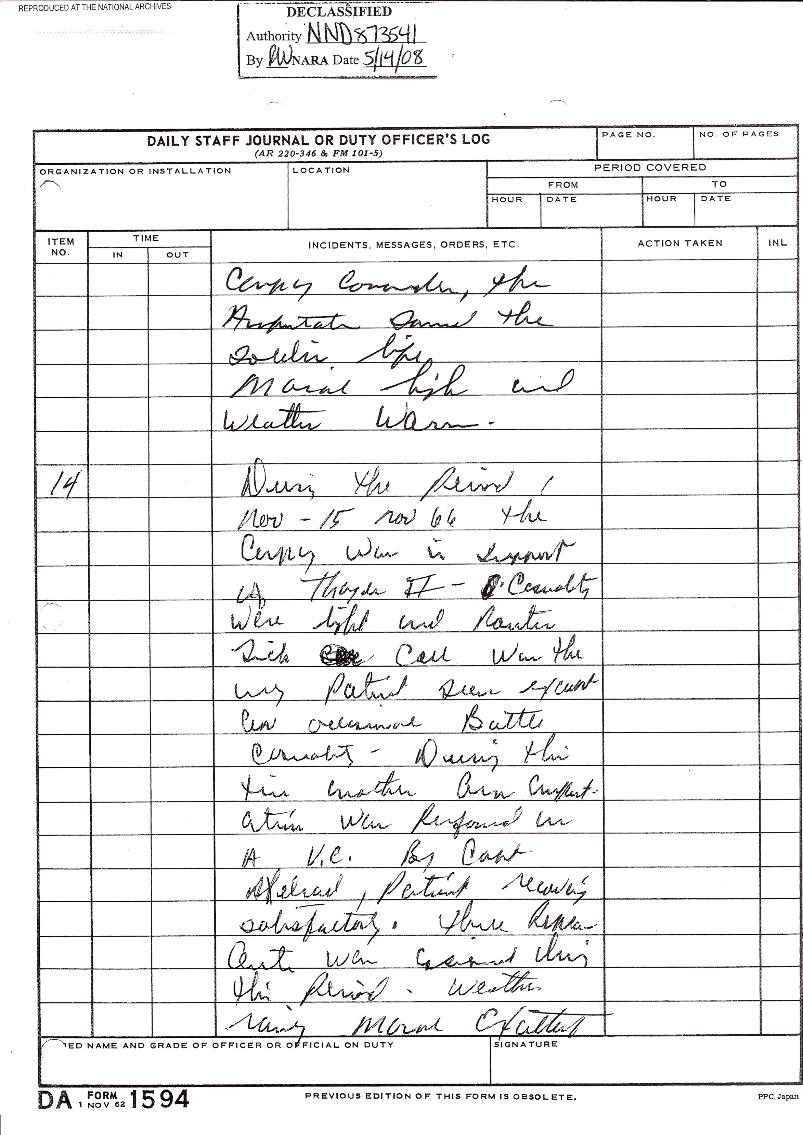 REPRODUCED AT THE NATIONAL ARCHIVES
DECLASSIFIED
Authority NND873541
By NARA Date 5/14/08
DAILY STAFF JOURNAL OR DUTY OFFICER'S LOG
(AR 220-346 & FM 101-5)
PAGE NO.
NO. OF PAGES
ORGANIZATION OR INSTALLATION
LOCATION
PERIOD COVERED
FROM
TO
HOUR
DATE
HOUR
DATE
ITEM NO.
TIME
IN
OUT
INCIDENTS, MESSAGES, ORDERS, ETC.
ACTION TAKEN
INL
the
the
life
high and
Weather Warm.
14 During the Period 1
Nov - 15 Nov 66 the
was in support
of Thayer II - Casualty
were light and Routine
Sick Call was the
only Patient seen except
an occasional Battle
Casualty - During this
time another Arm Amput-
ation was Performed on
A V.C. By Capt
, Patient recovering
satisfactory. three
was during
this Period. Weather
rainy Moral
ED NAME AND GRADE OF OFFICER OR OFFICIAL ON DUTY
SIGNATURE
DA FORM 1594
1 NOV 62
PREVIOUS EDITION OF THIS FORM IS OBSOLETE.
PPC, Japan